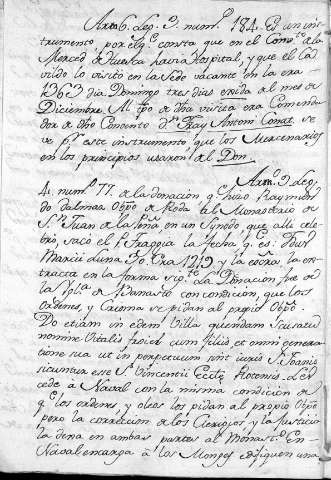 Arm.º 6. leg. 3. num.º 184. Es un ins-
trumento por el q.e consta que en el Comb.to de la
Merced de Huesca havia Hospital, y que el Ca-
vildo lo visito en la Sede vacante en la era
1363 dia Domingo tres dias exida el mes de
Diciembre. Al tpo de dha visita era Comenda-
dor de dho Convento d.n Fray Antoni Conat. se
ve p.r este instrumento que los Mercenarios
en los principios usaron del Don.
Arm.º 9. leg.
4. num.º 77. de la donacion q.e hizo Raymun-
do dalmaz Obpo de Roda al Monasterio de
S.n Juan de la Peña, en un Synodo que alli cele-
bro, sacó el P. Traggia la fecha q.e es: Idus
Marcii Luna Era 1219 y la escra. la en-
tracta en la forma sig.te La Donacion fue de
la Igl.a de Banasto con condicion, que los
Ordenes, y Crisma se pidan al propio Obpo.
Do etiam in edem Villa quendam
nomine Vitalis cum filiis et omni genera-
cione sua ut in perpetuum sint iuris S. Joanis
sicut esse S.ti Vincentii Rotensis.
cede à Naval con la misma condicion de
q.e los ordenes y oleos los pidan al propio Obpo
pero la correccion de los Clerigos y la Justicia
la dexa en ambas partes al Monast.o En
Naval encarga à los Monges edifiquen una